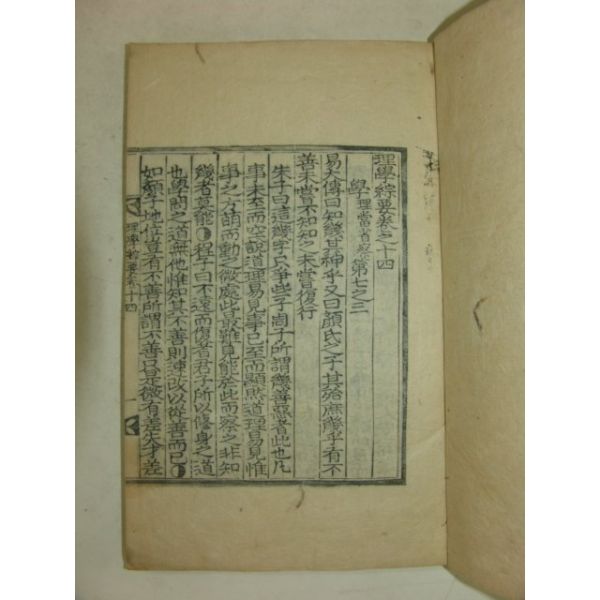 理學綜要卷之十四
學理當省察第七之二
易大傳曰知幾其神乎又曰顏氏之子其殆庶幾乎有不
善未嘗不知知之未嘗復行
朱子曰這幾字只爭些子周子所謂幾善惡者此也凡
事未至而空說道理易見事已至而顯然道理易見惟
事之方萌而動之微處此最難見能於此而察之非知
幾者莫能○程子曰不遠而復者君子所以修身之道
也學問之道無他惟知其不善則速改以從善而已○
如顏子地位豈有不善所謂不善只是微有差失才差
理學綜要卷十四
一